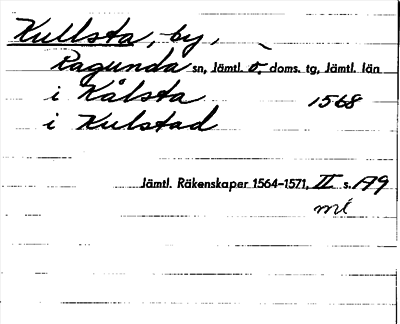 Kullsta, by,
Ragunda sn, Jämtl. ö. doms. tg, Jämtl. län
i Kålsta 1568
i Kulstad
Jämtl. Räkenskaper 1564–1571, II s. 179